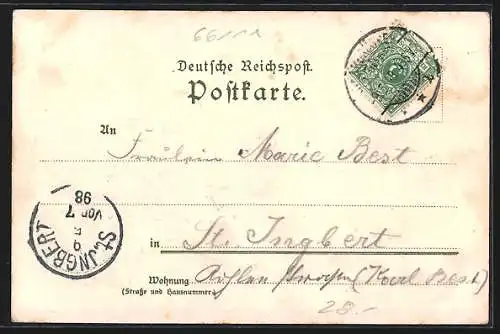 66/11a
Deutsche Reichspost.
Postkarte.
An
Fräulein Marie Best
St. Ingbert
98
Vor 7
6
ST. JNGBERT
in St. Ingbert
Wohnung (Karl Best)
(Straße und Hausnummer)
28.-